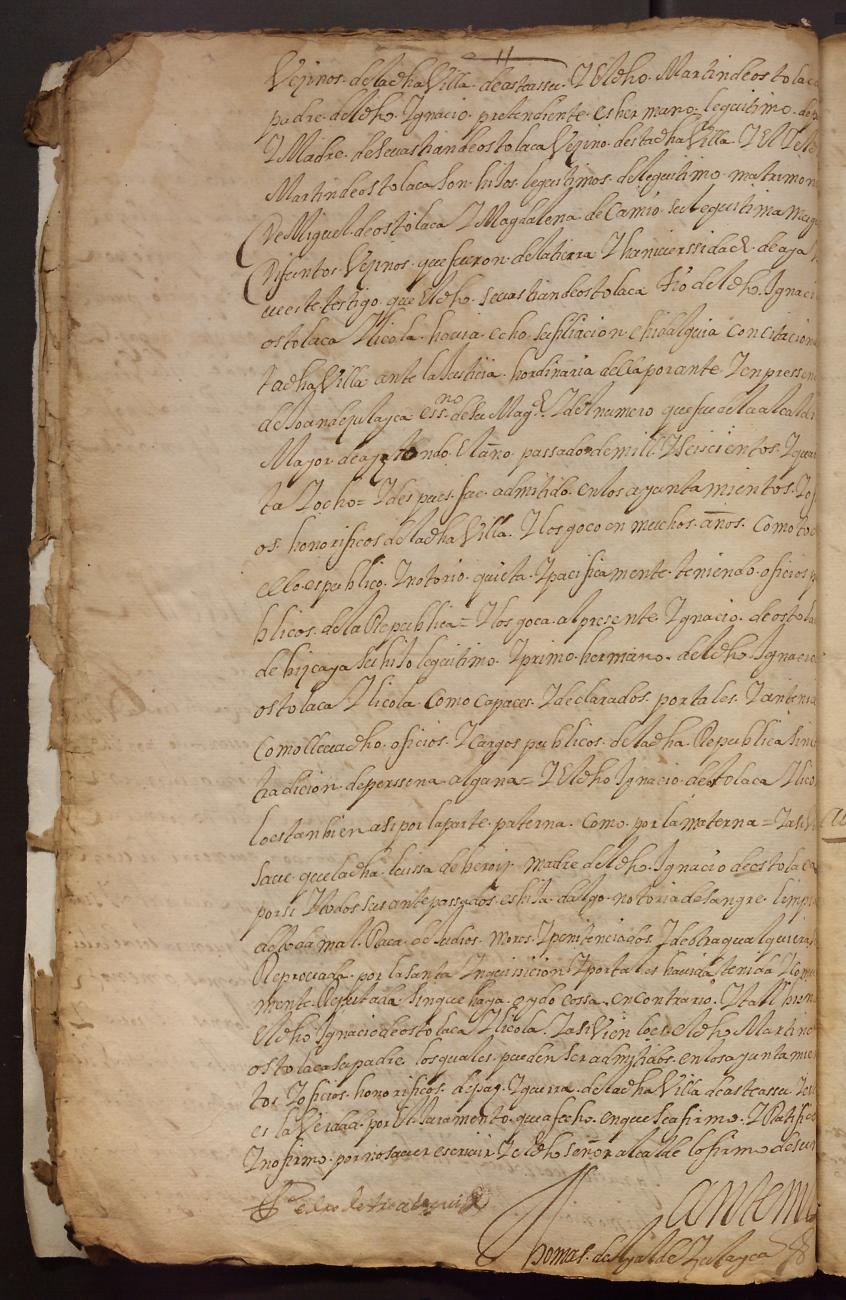 Vezinos. de la dha Villa. de asteassu. Y el dho. Martin de ostolaca
padre. del dho. Ygnacio. pretendiente. es hermano. legitimo. de
Y Madre. de Sevastian de ostolaca Vezino. desta dha Villa. Y el
Martin de ostolaca son. hijos. legitimos. de legitimo. matrimon
De Miguel. de ostolaca Y Magdalena de Camio. su legitima mug
Difuntos Vezinos. que fueron. de la tierra Y haniverssidad. de aya
este testigo. que el dho. sevastian de ostolaca tio del dho. Ygnaci
ostolaca Y licola. havia. echo. su filiacion. e hidalguia con citacion
ta dha Villa ante la Justicia. hordinaria della por ante. Y en pressen
de Joan de culayca essno. de su Magd. Y del numero que fue de la alcaldi
Mayor. de aytondo. el año. passado. de mill. Y seiscientos. Y quar
ta Y ocho = Y despues. fue. admitido. en los ayuntamientos. Y of
os. honorificos de la dha Villa. Y los goço en muchos. años. Como to
ello es publico. Y notorio. quieta. Y pacificamente. teniendo. oficios p
blicos. de la Republica = Y los goca. al presente Ygnacio. de ostola
de bizcaya su hijo legitimo. Y primo. hermano. del dho. Ygnacio
ostolaca Y licola. Como capaces. Y declarados. por tales. Y a tenid
Como lleva dho. oficios. Y Cargos publicos. de la dha Republica sin
tradicion. de perssona. alguna = Y el dho Ygnacio. de ostolaca Y lico
lo es tanbien asi por la parte. paterna. Como. por la materna = Y asi
save. que la dha. luissa de beroiz. madre del dho. Ygnacio de ostolaca
por si Y todos sus antepassados. es hija. dalgo. notoria de sangre. limpi
de toda mal. Raca. de Judios. moros. Y penitenciados. Y de otra qualquiera
Reprovada. por la santa Ynquisicion. Y por tales havida tenida Y Comu
mente. Reputada. sin que haya. oydo cossa. en contrario. Y tal
el dho. Ygnacio de ostolaca Y licola. Y asi Vien lo es el dho Martin
ostolaca su padre. los quales. pueden ser admitidos. en los ayuntamien
tos Y oficios. honorificos. de paz. Y guerra. de la dha Villa de asteassu. Y es
es la Verdad. por el Juramento. que a fecho. en que se afirmo. Y Ratifico
Y no firmo. por no saver escrivir Y el dho señor alcalde lo firmo de su
Antemi
Thomas. de ugalde Y culayca